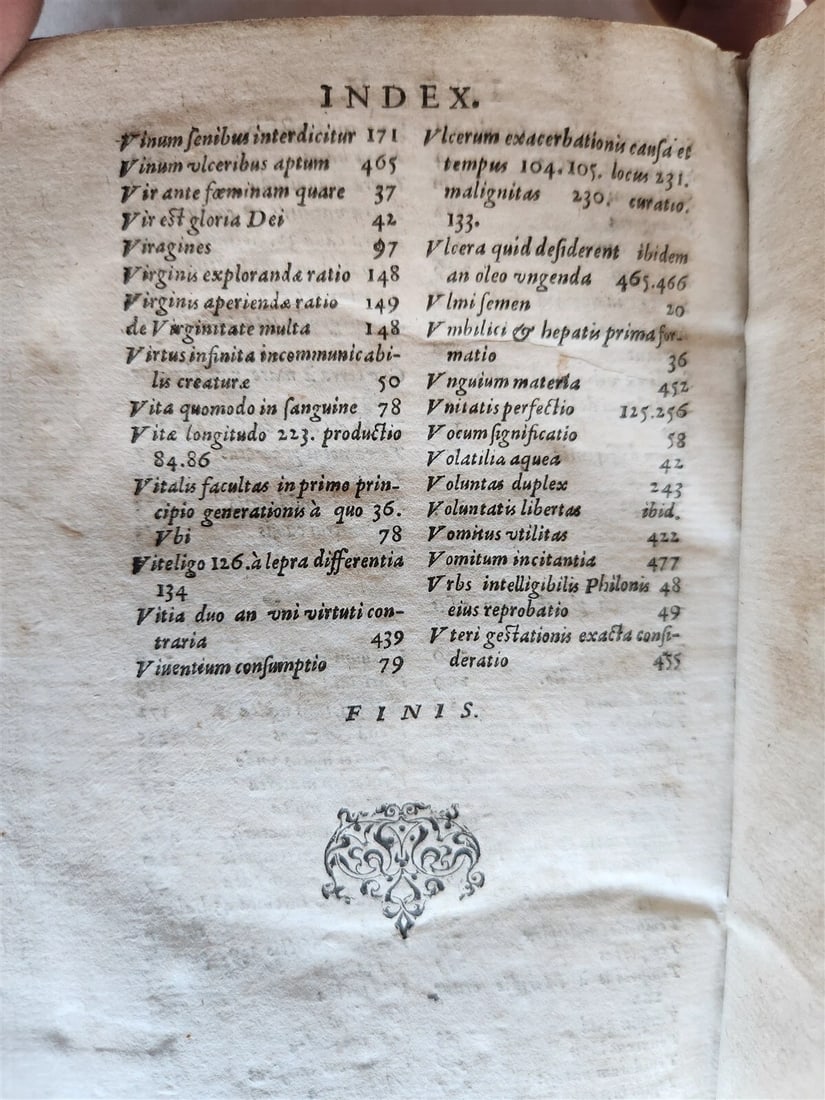 INDEX.
Vinum ſenibus interdicitur 171
Vinum vlceribus aptum 465
Vir ante fœminam quare 37
Vir eſt gloria Dei 42
Viragines 97
Virginis explorandæ ratio 148
Virginis aperiendæ ratio 149
de Virginitate multa 148
Virtus infinita incommunicabi-
lis creaturæ 50
Vita quomodo in ſanguine 78
Vitæ longitudo 223. productio
84.86
Vitalis facultas in primo prin-
cipio generationis à quo 36.
Vbi 78
Viteligo 126. à lepra differentia
134
Vitia duo an vni virtuti con-
traria 439
Viuentium conſumptio 79
Vlcerum exacerbationis cauſa et
tempus 104.105. locus 231.
malignitas 230. curatio.
133.
Vlcera quid deſiderent ibidem
an oleo vngenda 465.466
Vlmi ſemen 20
Vmbilici & hepatis prima for-
matio 36
Vnguium materia 452
Vnitatis perfectio 125.256
Vocum ſignificatio 58
Volatilia aquea 42
Voluntas duplex 243
Voluntatis libertas ibid.
Vomitus vtilitas 422
Vomitum incitantia 477
Vrbs intelligibilis Philonis 48
eius reprobatio 49
Vteri geſtationis exacta conſi-
deratio 455
FINIS.